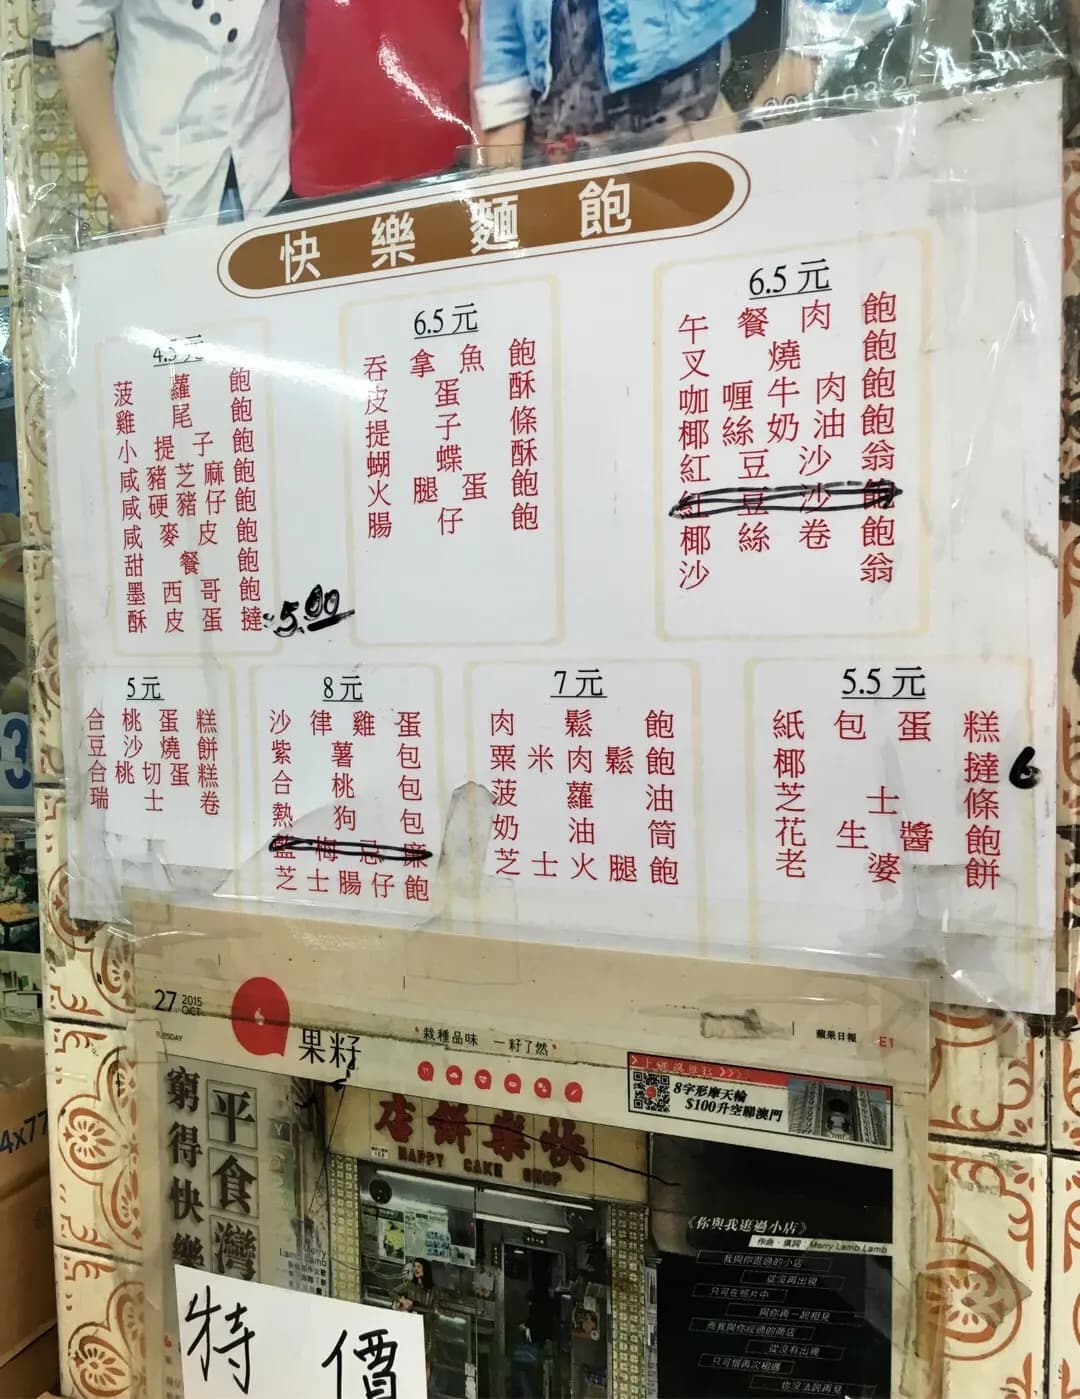 快樂麵飽
4.5元
菠蘿飽
雞尾飽
小提子飽
咸豬芝麻飽
咸硬豬仔飽
咸麥皮飽
甜餐飽
墨西哥飽
酥皮蛋撻 5.00
6.5元
吞拿魚飽
皮蛋酥
提子條
蝴蝶酥
火腿蛋飽
腸仔飽
6.5元
午餐肉飽
叉燒飽
咖喱牛肉飽
椰絲奶油飽
紅豆沙翁
紅豆沙飽
椰絲卷飽
沙翁
5元
合桃蛋糕
豆沙燒餅
合桃切蛋糕
瑞士卷
8元
沙律雞蛋
紫薯包
合桃包
熱狗包
藍梅忌廉
芝士腸仔飽
7元
肉鬆飽
粟米肉鬆飽
菠蘿油
奶油筒
芝士火腿飽
5.5元
紙包蛋糕
椰撻 6
芝士條
花生醬飽
老婆餅
27 2015 OCT
TUESDAY
果籽
栽種品味 一籽了然
蘋果日報 E1
8字形摩天輪
$100升空睇澳門
窮得快樂
平食灣
快樂餅店
HAPPY CAKE SHOP
《你與我逛過小店》
作曲、填詞：Merry Lamb Lamb
我與你逛過的小店
從沒再出現
只可在照片中
與你再一起相見
而我與你經過的商店
從沒有出現
只可惜再次相遇
也沒法說再見
特價